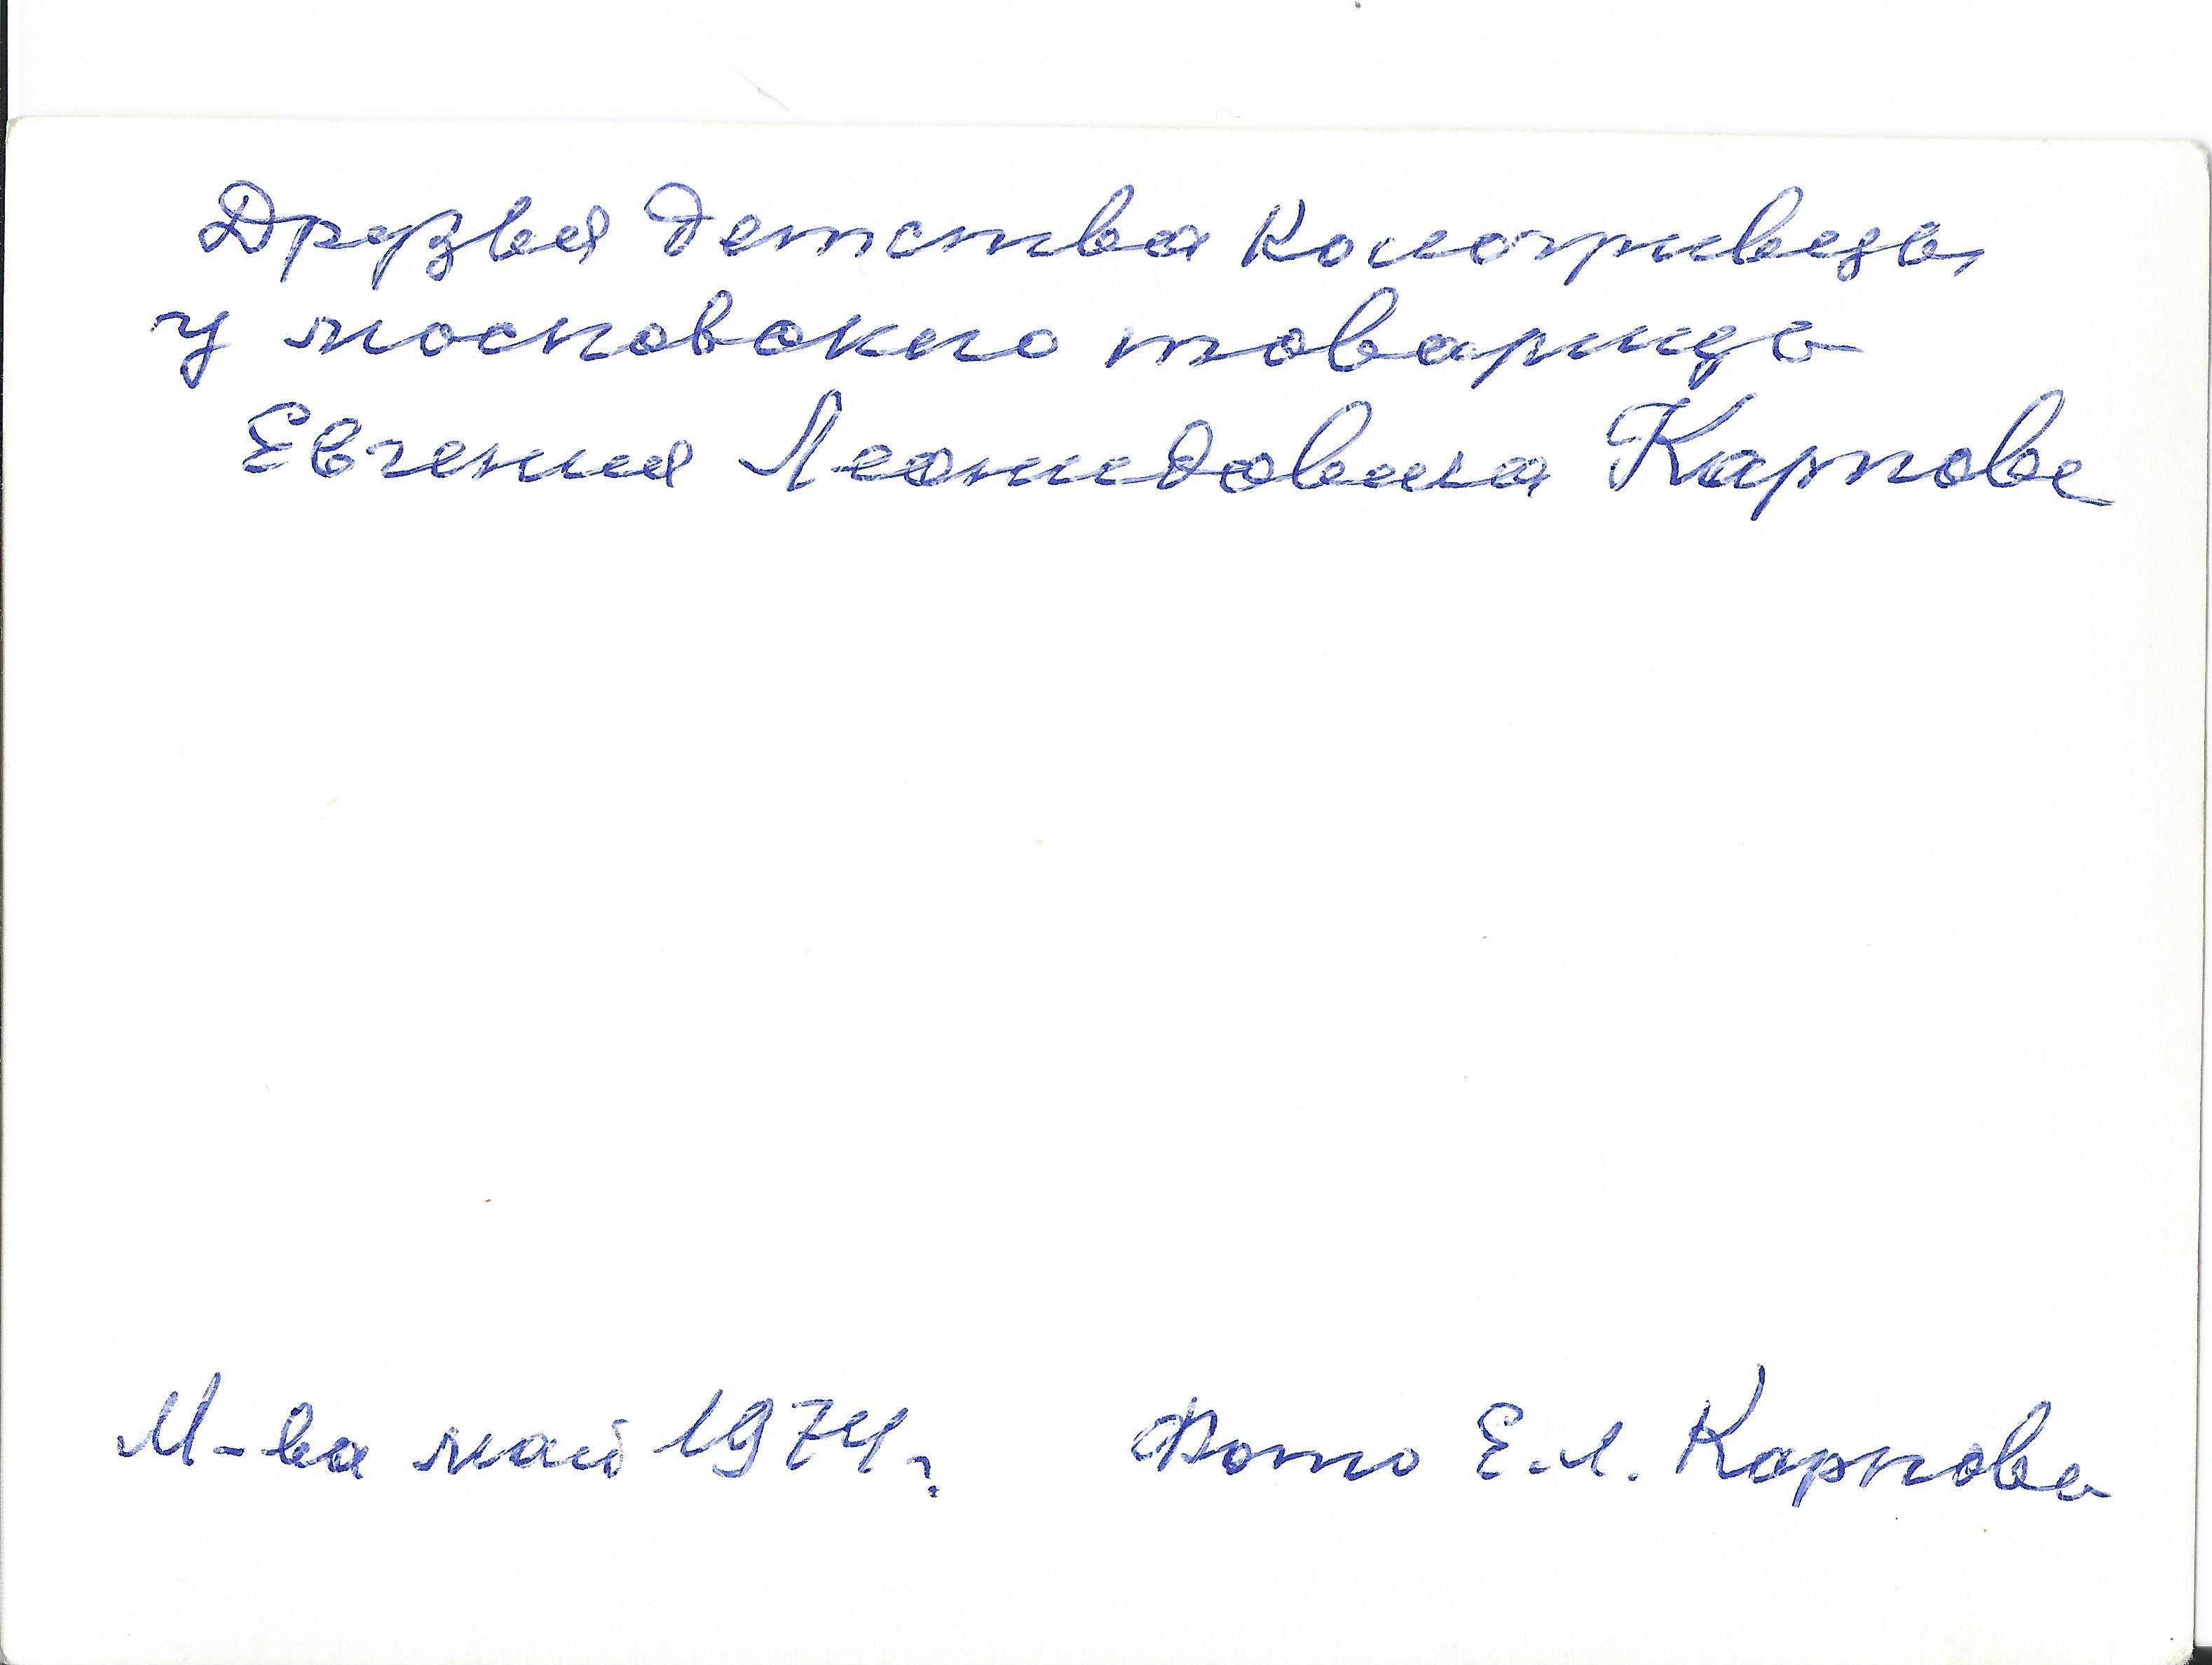 Друзья детства Кологривцы
у московского товарища
Евгения Леонидовича Карпова
М-ва май 1974 г.
Фото Е.Л. Карпова